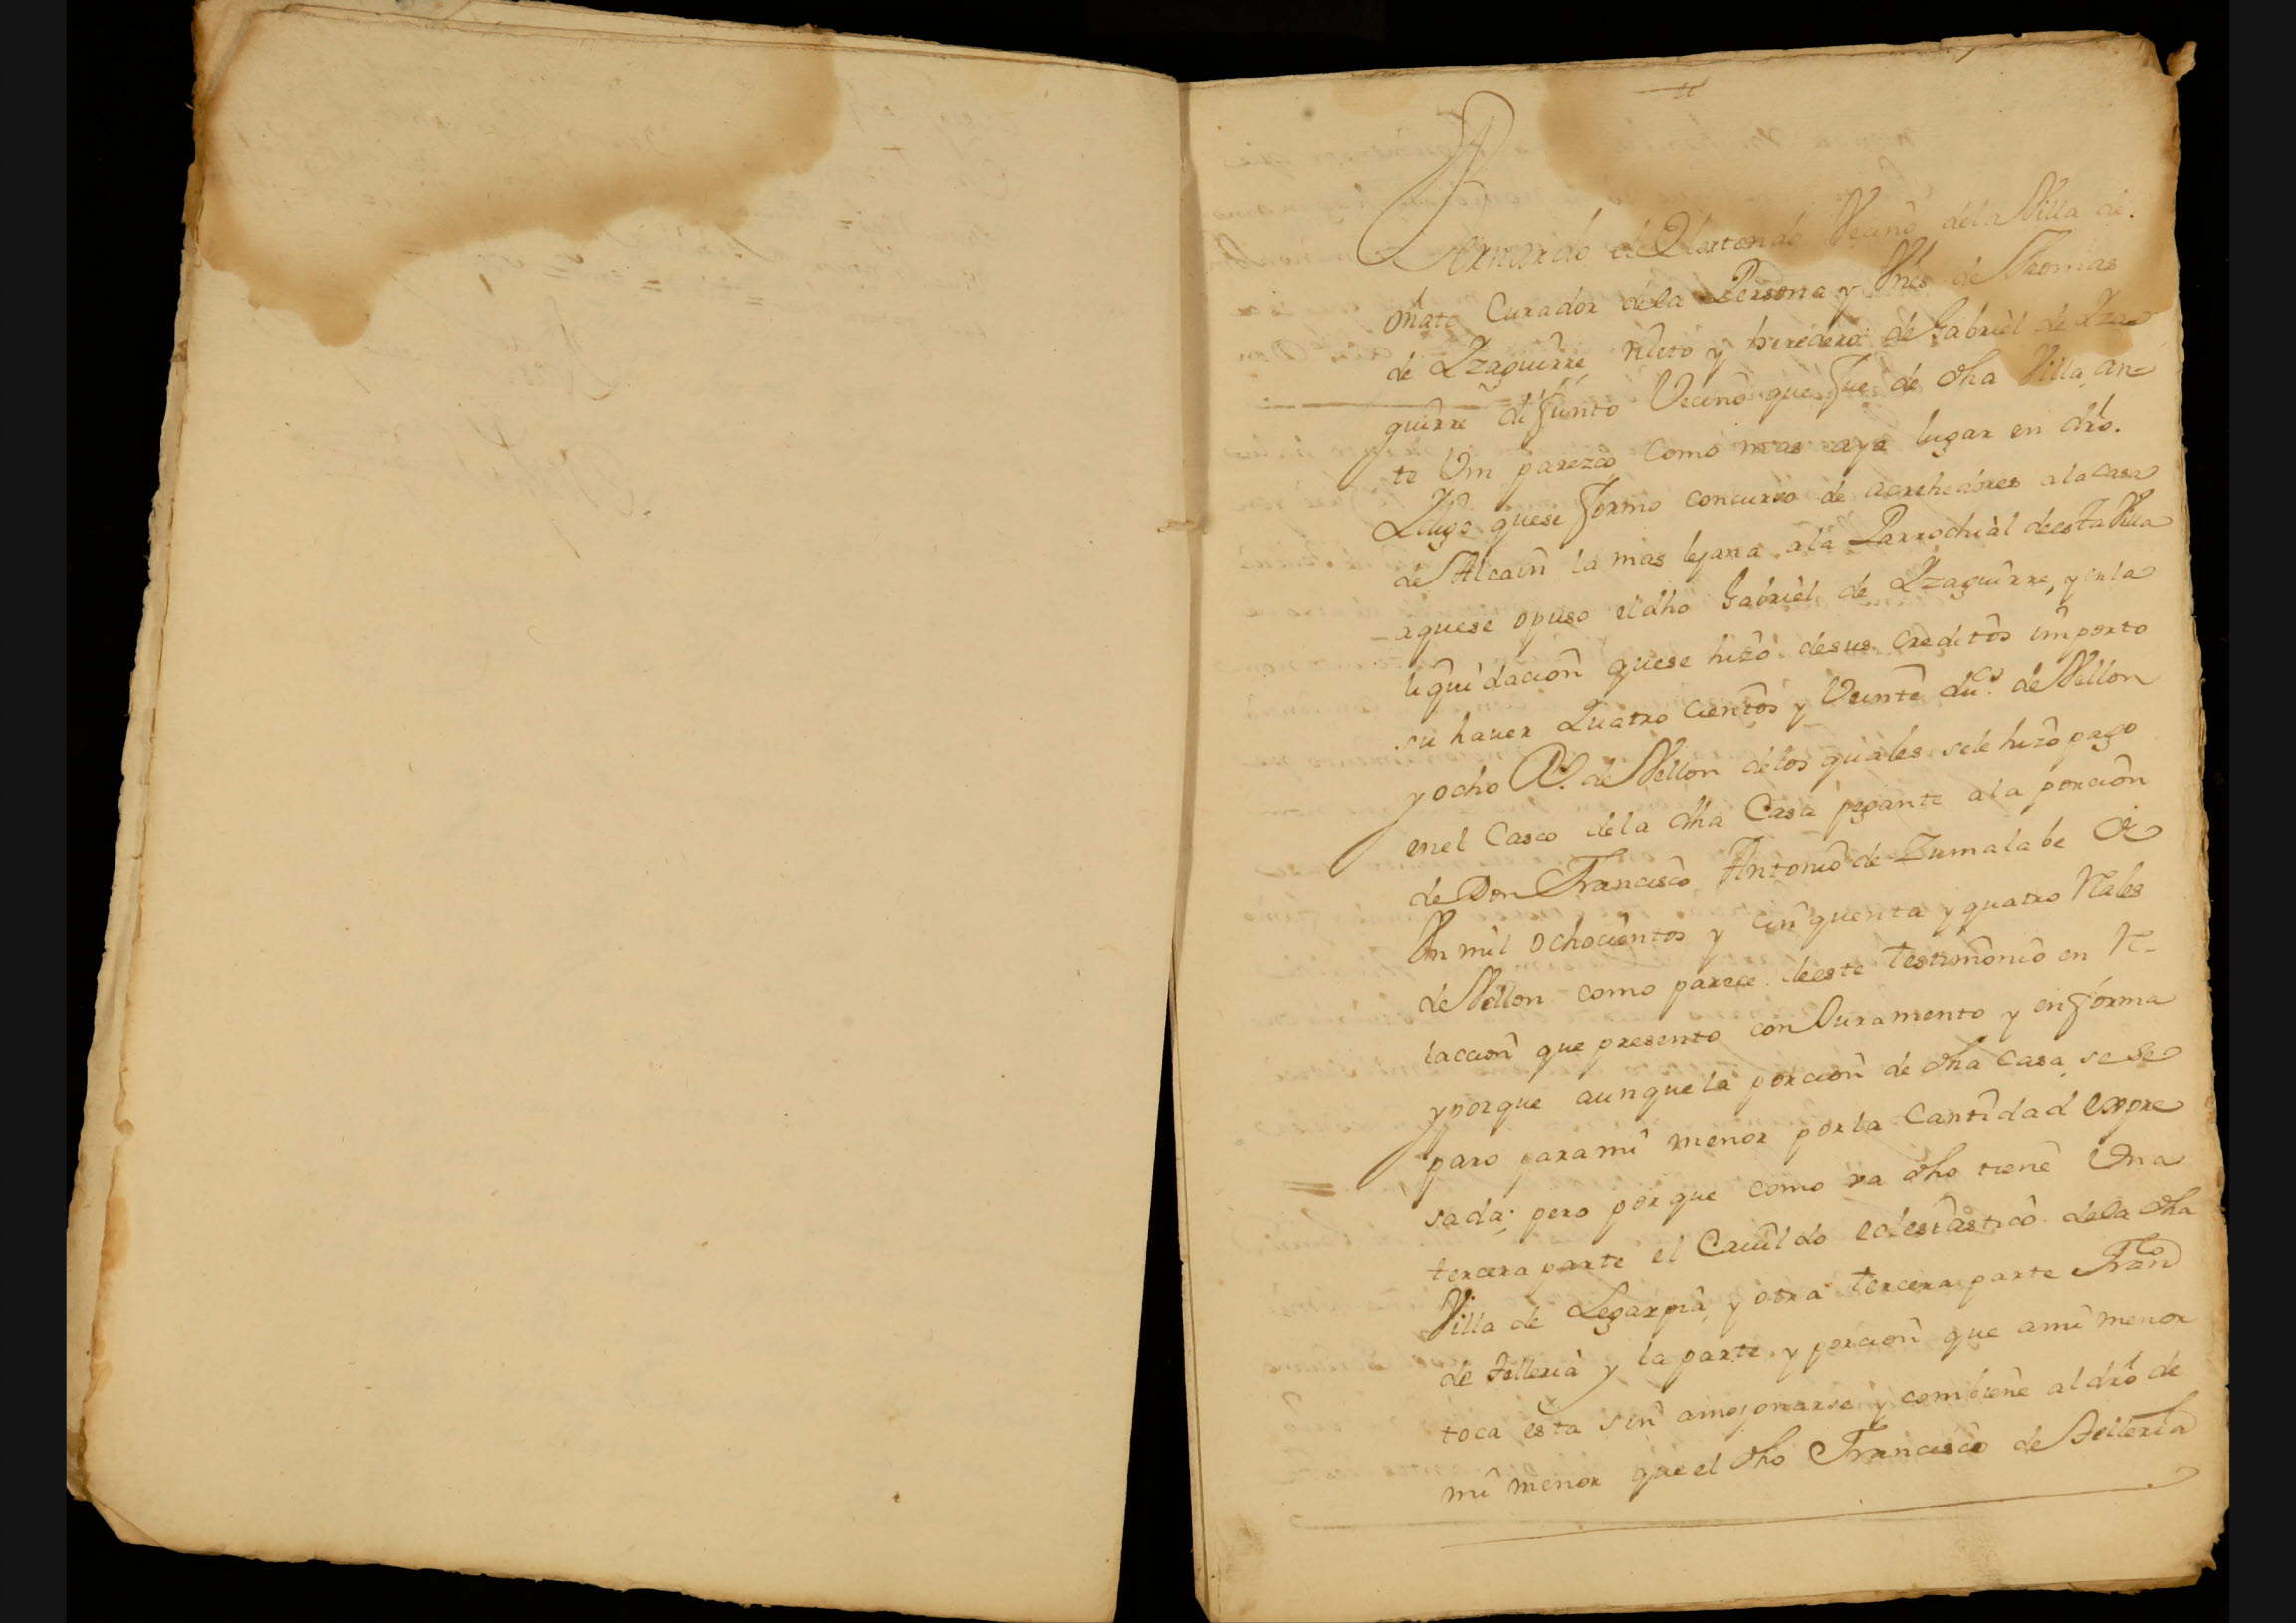 Bernardo de Olortondo Vecino dela Villa de
oñate Curador dela Persona y Vnes de Thomas
de Yzaguirre, nieto y heredero de Gabriel de Yza
guirre difunto Vecino que fue de dha Villa, an=
te Vm parezco como mas aya lugar en dro.
Y digo quese formo concurso de acrehedores ala casa
de Alcain la mas lejana ala Parrochial deesta Villa
aquese opuso eldho Gabriel de Yzaguirre, y enla
liquidacion quese hizo desus creditos importo
su hauer Quatro cientos y Veinte dus. de Vellon
y ocho Rs. de Vellon delos quales sele hizo pago
enel Casco dela dha Casa pegante ala porcion
de Don Francisco Antonio de Zumalabe &
Vn mil ochocientos y cinquenta y quatro Rales
de Vellon como parece deeste testimonio en R-
lacion que presento con Juramento y enforma
yporque aunquela porcion de dha Casa, se se
paro para mi menor por la Cantidad expre
sada; pero porque como va dho tiene Una
tercera parte el Cauildo eclesiastico dela dha
Villa de Legazpia, y otra tercera parte Franco
de Telleria y la parte y porcion que ami menor
toca esta sin amojonarse y combiene al dro de
mi menor que el dho Francisco de Telleria